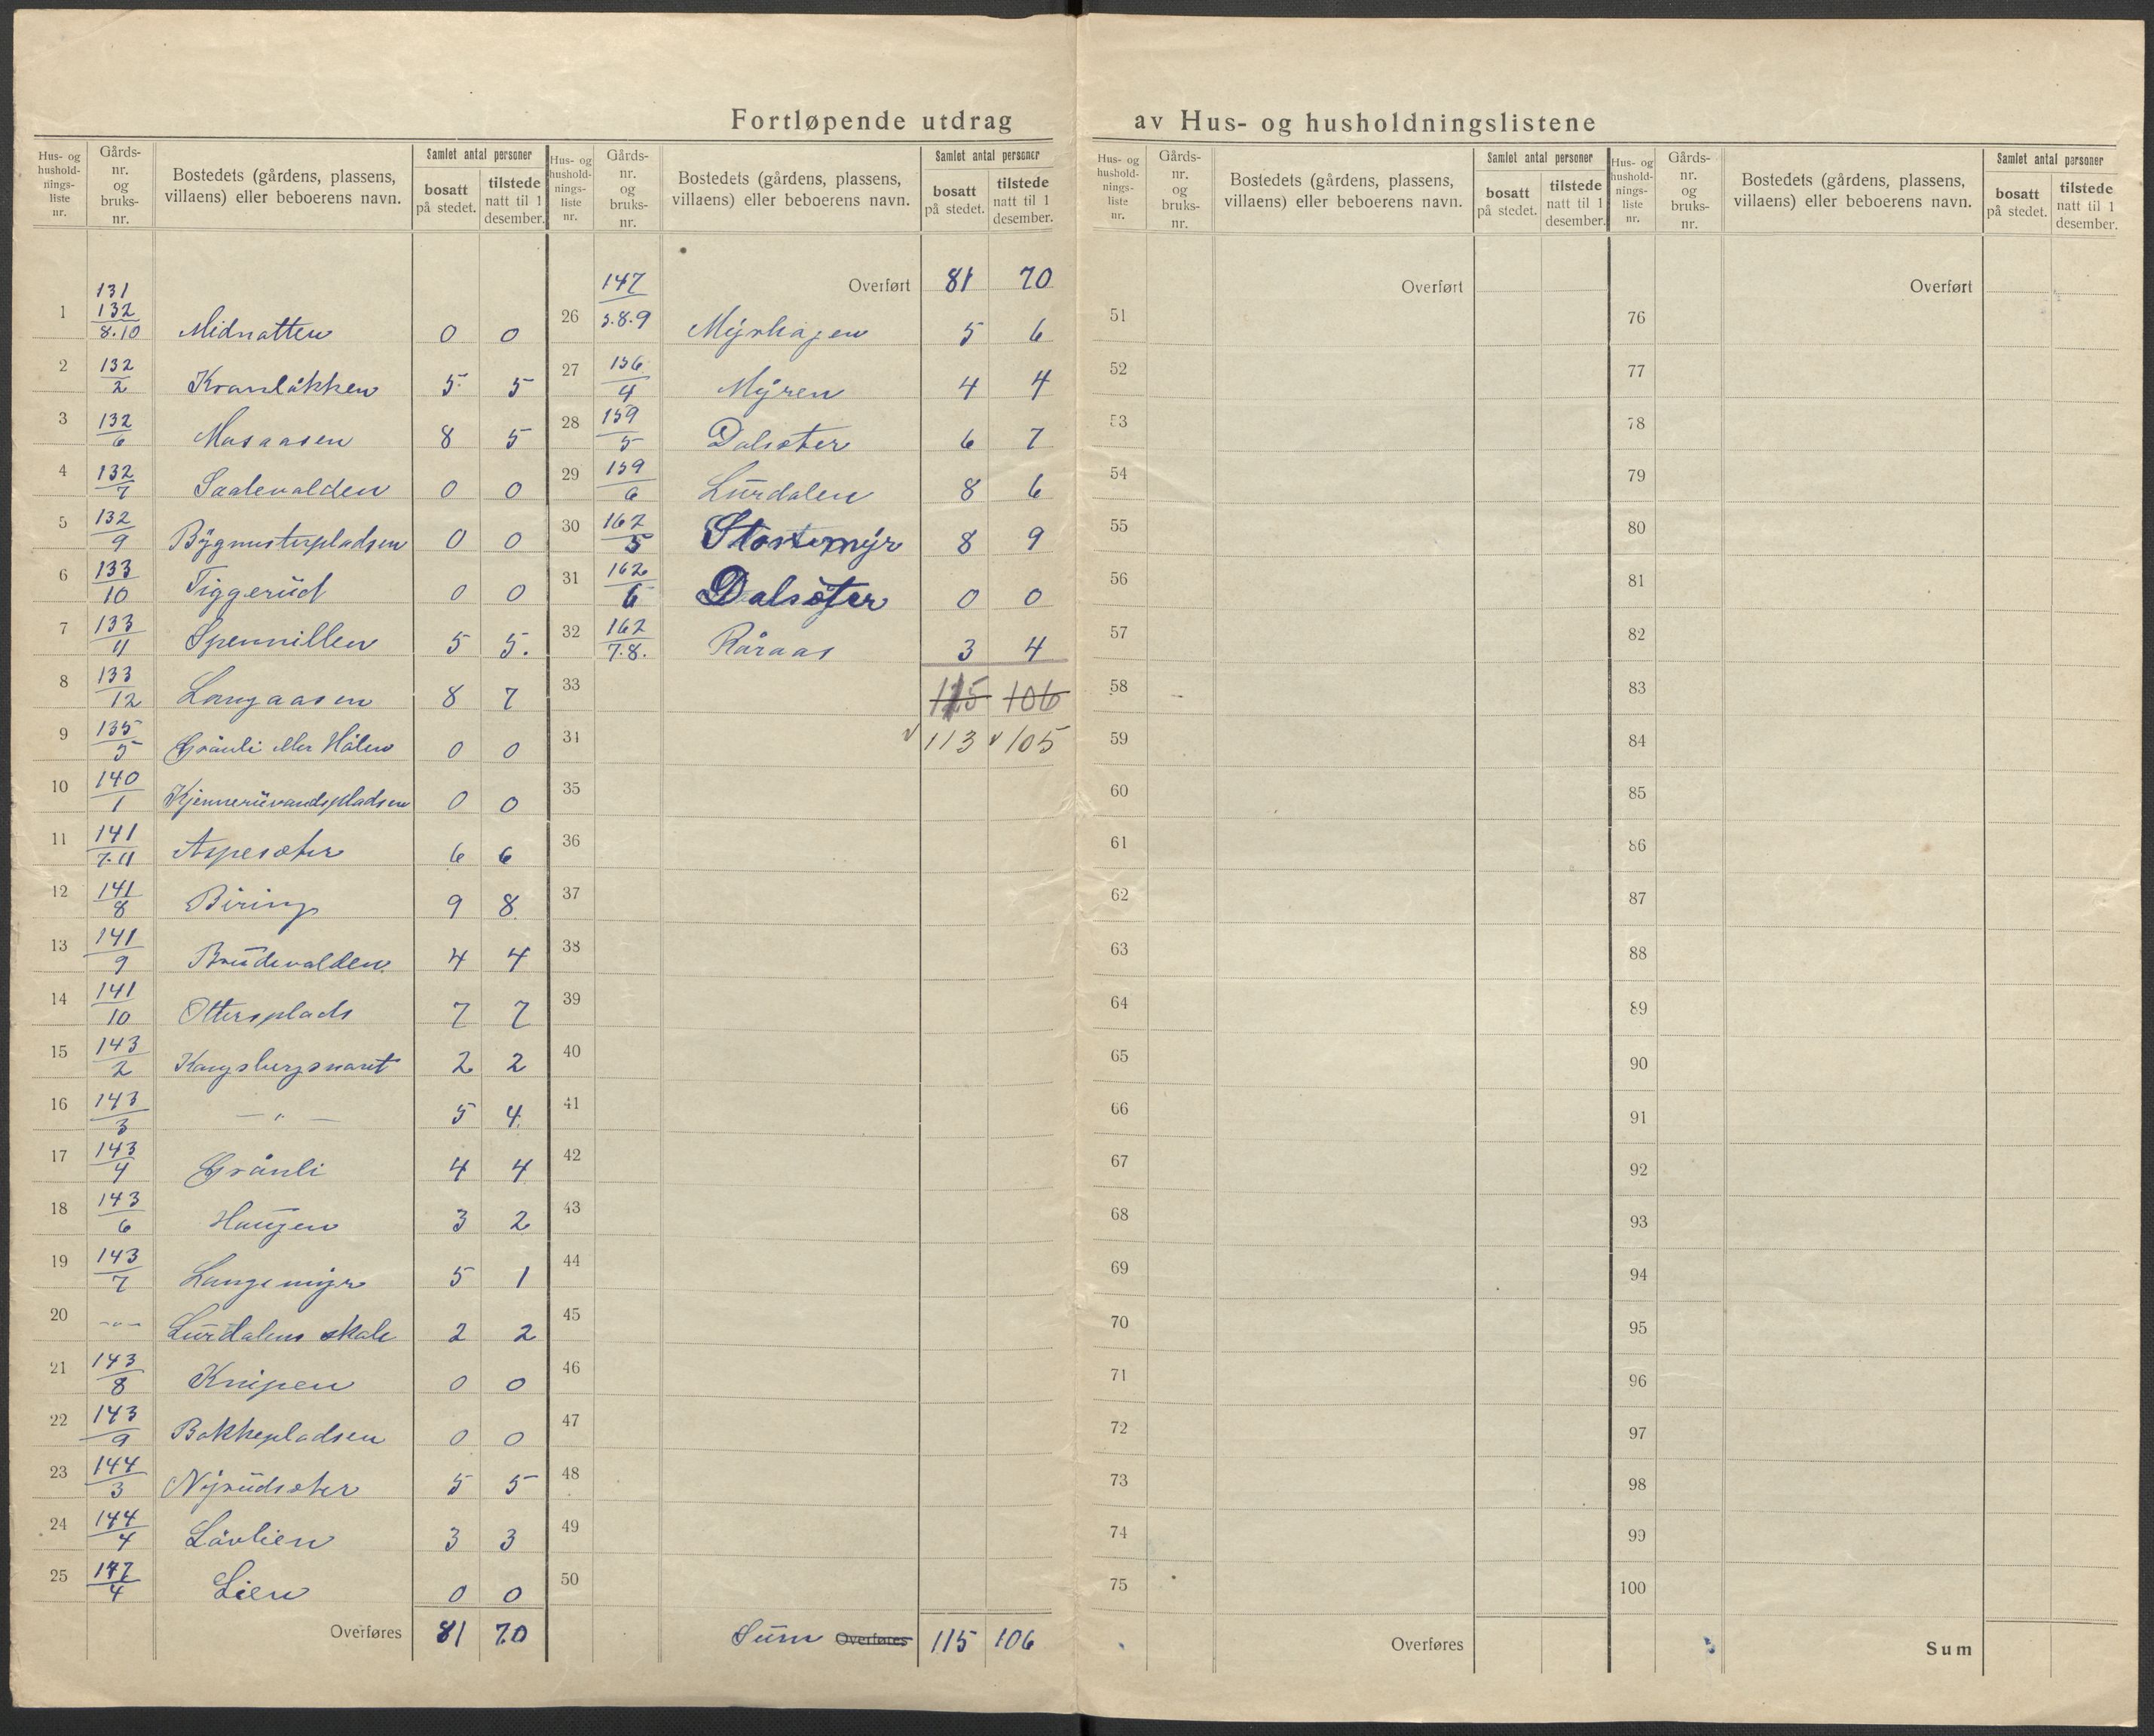 Fortløpende utdrag av Hus- og husholdningslistene
Hus- og husholdnings-liste nr. Gårds-nr. og bruks-nr. Bostedets (gårdens, plassens, villaens) eller beboerens navn. Samlet antal personer bosatt på stedet. tilstede natt til 1 desember.
Hus- og husholdnings-liste nr. Gårds-nr. og bruks-nr. Bostedets (gårdens, plassens, villaens) eller beboerens navn. Samlet antal personer bosatt på stedet. tilstede natt til 1 desember.
Hus- og husholdnings-liste nr. Gårds-nr. og bruks-nr. Bostedets (gårdens, plassens, villaens) eller beboerens navn. Samlet antal personer bosatt på stedet. tilstede natt til 1 desember.
Hus- og husholdnings-liste nr. Gårds-nr. og bruks-nr. Bostedets (gårdens, plassens, villaens) eller beboerens navn. Samlet antal personer bosatt på stedet. tilstede natt til 1 desember.
1 131 132/8.10 Midnatten 0 0
2 132/2 Kranlåkken 5 5
3 132/6 Masaasen 8 5
4 132/7 Saalevalden 0 0
5 132/9 Bygmesterpladsen 0 0
6 133/10 Tiggerud 0 0
7 133/11 Spennillen 5 5.
8 133/12 Langaasen 8 7
9 135/5 Grånli eller Hålen 0 0
10 140/1 Kjennerüvandspladsen 0 0
11 141/7.11 Aspesæter 6 6
12 141/8 Biring 9 8
13 141/9 Brudevalden 4 4
14 141/10 Ottersplads 7 7
15 143/2 Kongsbergsnart 2 2
16 143/3 — " — 5 4
17 143/4 Grånli 4 4
18 143/6 Haugen 3 2
19 143/7 Langemyr 5 1
20 -"- Lurdalens skole 2 2
21 143/8 Knipen 0 0
22 143/9 Bakkepladsen 0 0
23 144/3 Nyrudsæter 5 5
24 144/4 Låvlien 3 3
25 147/4 Lien 0 0
Overføres 81 70
Overført 81 70
26 147/5.8.9 Myrhagen 5 6
27 156/4 Myren 4 4
28 159/5 Dalsæter 6 7
29 159/6 Lurdalen 8 6
30 162/5 Stortemyr 8 9
31 162/6 Dalsæter 0 0
32 162/7.8. Råraas 3 4
33 115 106
34 113 105
35
36
37
38
39
40
41
42
43
44
45
46
47
48
49
50
Sum Overføres 115 106
Overført
51
52
53
54
55
56
57
58
59
60
61
62
63
64
65
66
67
68
69
70
71
72
73
74
75
Overføres
Overført
76
77
78
79
80
81
82
83
84
85
86
87
88
89
90
91
92
93
94
95
96
97
98
99
100
Sum